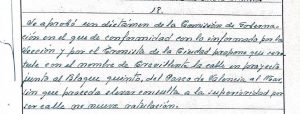 13.
Se aprobó un dictámen de la Comisión de Goberna-
ción en el que de conformidad con lo informado por la
Sección y por el Cronista de la Ciudad propone que se ro-
tule con el nombre de Crevillente la calle en proyecto
junto al Bloque quinto, del Paseo de Valencia al Mar
sin que proceda elevar consulta a la superioridad por
ser calle de nueva rotulación.